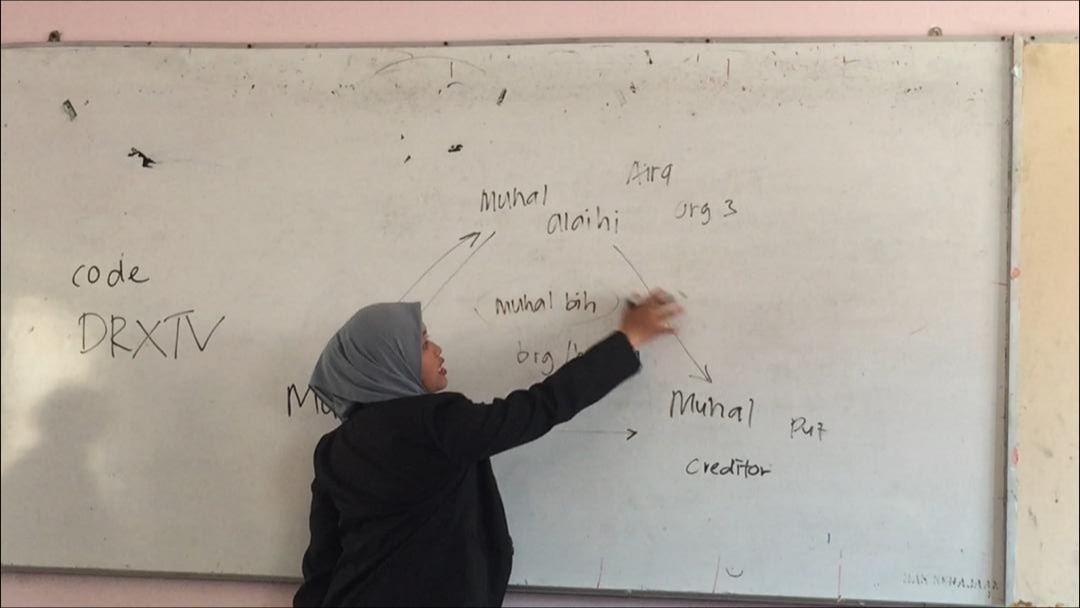 Muhal
alaihi
Aira
org 3
code
DRXTV
(muhal bih)
brg
Mu
Muhal
Put
creditor